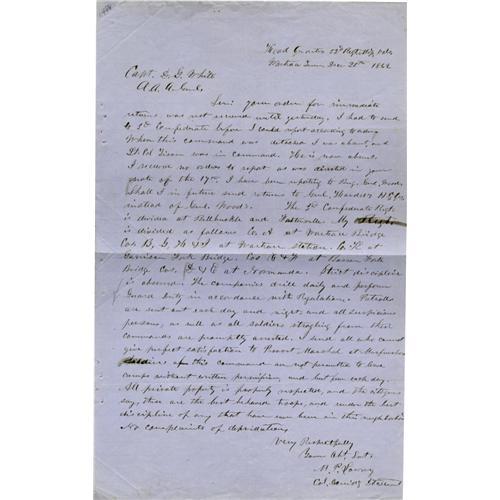 Head Quarters 33d Regt Miss Vols
Wartrace Tenn Dec 20th 1862
Capt. D. G. White
A. A. A. Genl.
Sir: your order for immediate
returns was not received until yesterday. I had to send
to 3d Confederate before I could report according to day
When this command was detached I was absent, and
Lt. Col. Tison was in command. He is now absent.
I received no orders to report as was directed in your
note of the 17th. I have been reporting to Brig. Genl. Wood.
Shall I in future send returns to Genl. Hardee's H. Qrs
instead of Genl. Wood's. The 3d Confederate Regt.
is divided at Bellbuckle and Fosterville. My
is divided as follows Co. A at Wartrace Bridge
Cos B, G, H & I at Wartrace Station. Co. K at
Garrison Fork Bridge. Cos & F at Fork
Bridge Cos. D & E at Normandy. Strict discipline
is observed. The companies drill daily and perform
Guard Duty in accordance with Regulations. Patrolls
are sent out each day and night, and all suspicious
persons, as well as all soldiers stragling from their
commands are promptly arrested. I send all who cannot
give perfect satisfaction to Provost Marshal at Murfreesboro
Soldiers of this command are not permitted to leave
camps without written permission, and but few each day.
All private property is properly respected, and the citizens
say, these are the best behaved troops, and under the best
discipline of any that have ever been in this neighborhood
No complaints of depridations.
Very Respectfully
Your Obt. Servt.
M. P. Lowrey
Col. Comdg